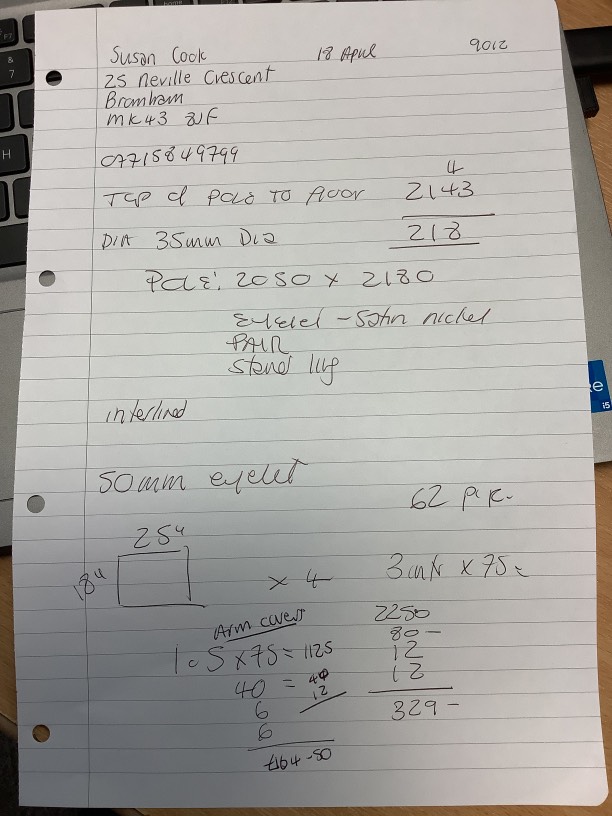 Susan Cook 18 April 9012
25 Neville Crescent
Bromham
MK43 8UF
07715849799
4
TOP of Pole TO floor 2143
DIA 35mm Dia 218
Pole: 2050 x 2180
Eyelet - Satin nickel
PAIR
Stand
interlined
50mm eyelet
62 p.k.
25"
18" x 4 3 mtr x 75
Arm covers 2250
80 -
1.5 x 75 = 1125 12
40 = 40 12
12
6 329 -
6
164-50